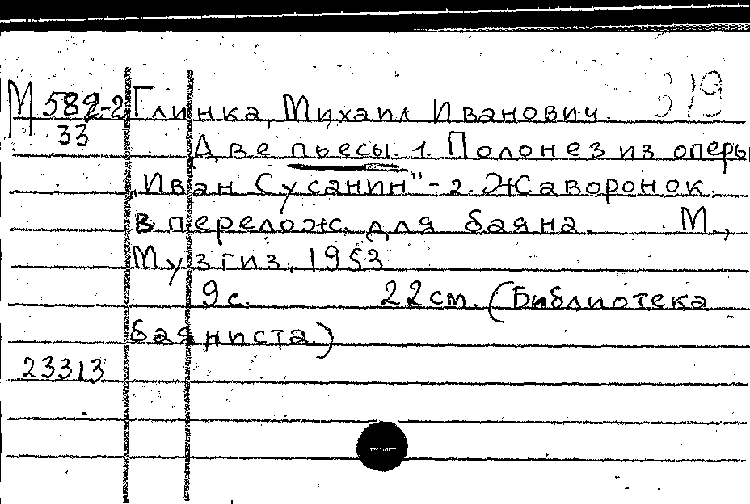 М 589-2 Глинка, Михаил Иванович. 319
33 Две пьесы. 1. Полонез из оперы
„Иван Сусанин" - 2. Жаворонок.
в перелож. для баяна. М.,
Музгиз, 1953
9 с. 22 см. (Библиотека
баяниста.)
23313